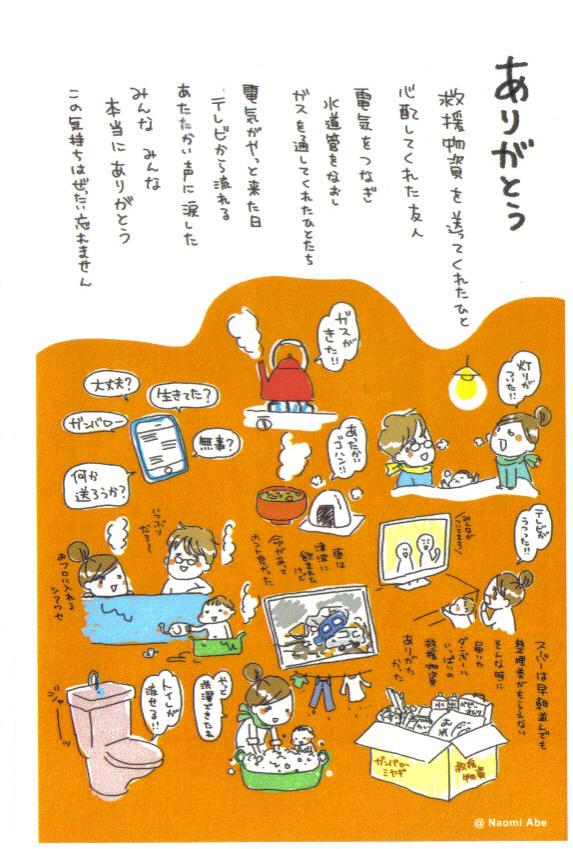 ありがとう
救援物資を送ってくれたひと
心配してくれた友人
電気をつなぎ
水道管をなおし
ガスを通してくれたひとたち
電気がやっと来た日
テレビから流れる
あたたかい声に涙した
みんな みんな
本当にありがとう
この気持ちはぜったい忘れません
ガスが
きた!!
灯りが
ついた!!
大丈夫?
生きてた?
ガンバロー
無事?
何か
送ろうか?
あったかい
ゴハン!!
テレビが
うつった!!
みんなが
いつぶり
だろ〜
おフロに入れる
シアワセ
車は
津波に
飲まれた
けど
命があって
ホント良かった
スーパーは早朝並んでも
整理券がもらえない
そんな時に
届いた
ダンボールに
いっぱいの
救援物資
ありがた
かった
ジャーッ
トイレが
流せる!!
やっと
洗濯できたね
水
お米
ガンバロー
ミヤギ
救援
物資
@ Naomi Abe